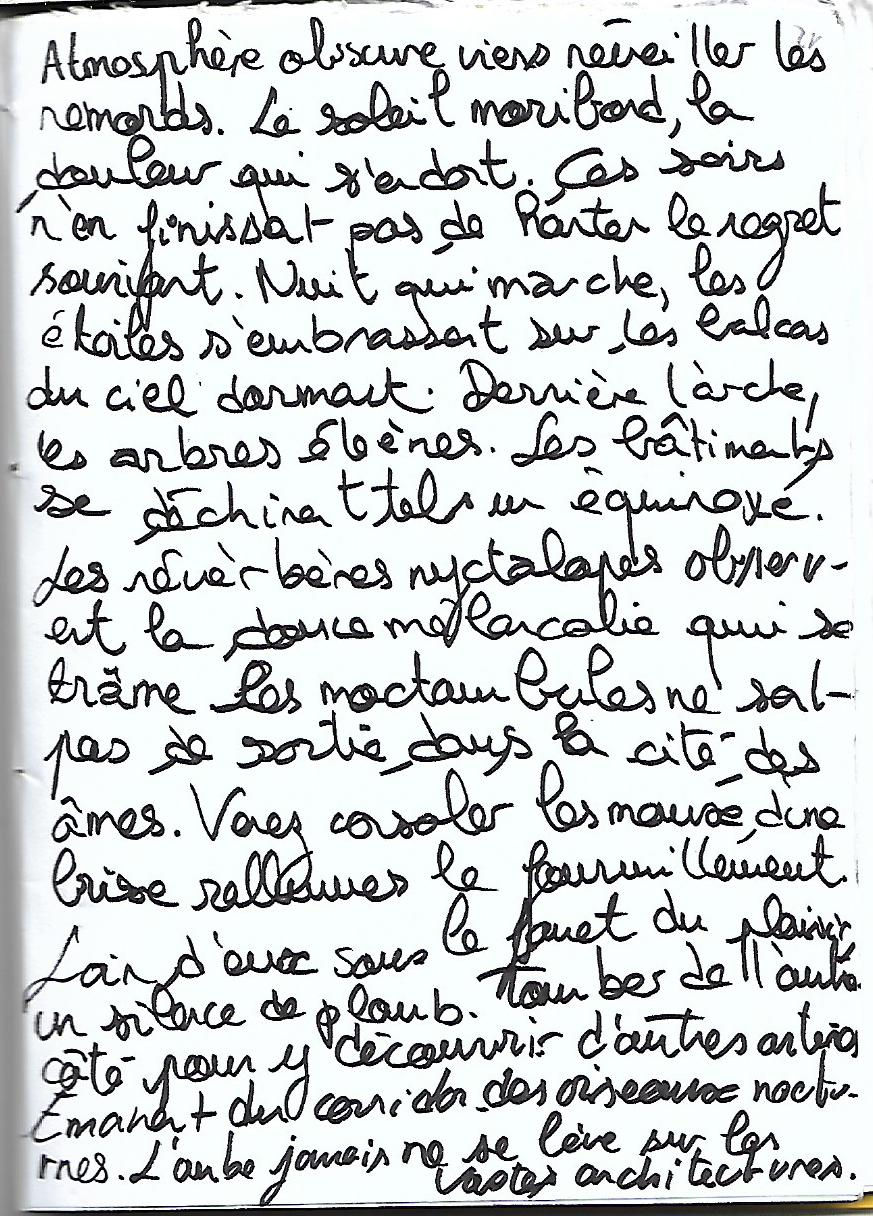 Atmosphère obscure viens réveiller les
remords. Le soleil moribond, la
douleur qui s'endort. Ces soirs
n'en finissent pas de hanter le regret
souriant. Nuit qui marche, les
étoiles s'embrassent sur les balcons
du ciel dormant. Derrière l'arche,
les arbres ébènes. Les bâtiments
se déchirent tels un équinoxe.
Les réverbères nyctalopes observ-
ent la douce mélancolie qui se
trâme les noctambules ne sont
pas de sortie dans la cité des
âmes. Venez consoler les d'une
brise rallumes le fourmillement.
Loin d'eux sous le fouet du plaisir
un silence de plomb. Tomber de l'autre
côté pour y découvrir d'autres
Émanant du corridor des oiseaux noctur-
nes. L'aube jamais ne se lève sur les
vastes architectures.